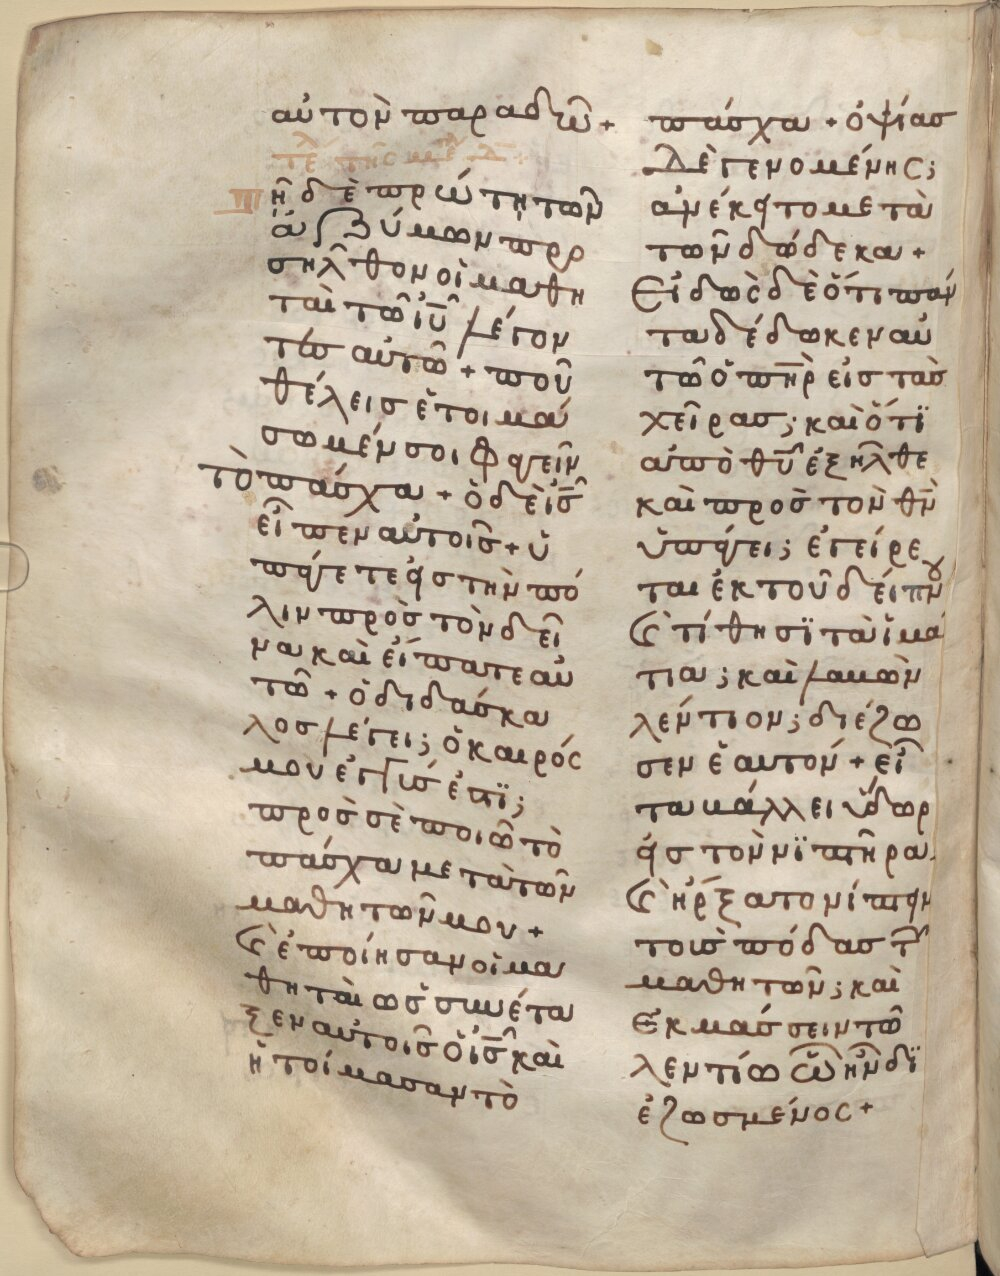 αὐτὸν παραδῶ +
τέ τῆς με
τῆ δὲ πρώτη τῶν
ἀζύμων προ
σῆλθον οἱ μαθη
ταὶ τῶ ιῦ λέγον
τες αὐτῶ + ποῦ
θέλεις ἑτοιμά
σωμέν σοι φαγεῖν
τὸ πάσχα + ὁ δὲ ις
εἶπεν αὐτοῖς + ὑ
πάγετε εἰς τὴν πό
λιν πρὸς τὸν δεῖ
να καὶ εἴπατε αὐ
τῶ + ὁ διδάσκα
λος λέγει; ὁ καιρός
μου ἐγγύς ἐστϊ;
πρὸς σὲ ποιῶ τὸ
πάσχα μετὰ τῶν
μαθητῶν μου +
Καὶ ἐποίησαν οἱ μα
θηταὶ ὡς συνέτα
ξεν αὐτοῖς ὁ ις καὶ
ἡτοίμασαν τὸ
πάσχα + ὀψίας
δὲ γενομένης;
ἀνέκειτο μετὰ
τῶν δώδεκα +
Εἰδὼς δὲ ὅτι πάν
τα δέδωκεν αὐ
τῶ ὁ πηρ εἰς τὰς
χεῖρας; καὶ ὅτϊ
ἀπὸ θῦ ἐξῆλθε
καὶ πρὸς τὸν θν
ὑπάγει; ἐγείρε
ται ἐκ τοῦ δείπν
Καὶ τίθησϊ τὰ ἱμά
τια; καὶ λαβὼν
λέντιον; διέζω
σεν ἑαυτόν + εἶ
τα βάλλει ὕδωρ
εἰς τὸν νϊπτῆρα.
Καὶ ἤρξατο νίπτειν
τοὺς πόδας τῶν
μαθητῶν; καὶ
ἐκμάσσειν τῶ
λεντίω ὧ ἦν δϊ
εζωσμένος +